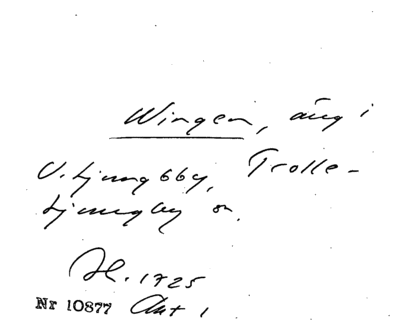 Wingen, äng i
V. Ljungby, Trolle-
Ljungby sn.
1725
Nr 10877 Akt 1